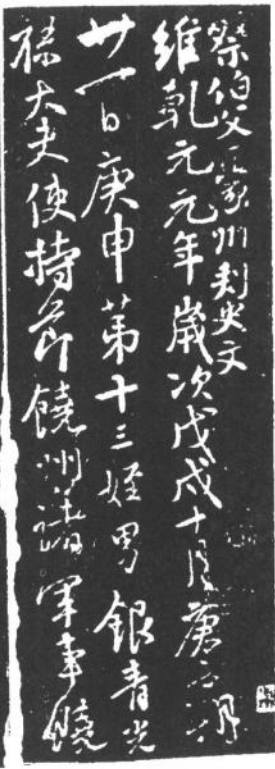 祭伯父豪州刾史文
維乹元元年歲次戊戌十月庚子朔
廿一日庚申苐十三姪男銀青光
祿大夫使持節饒州諸軍事饒